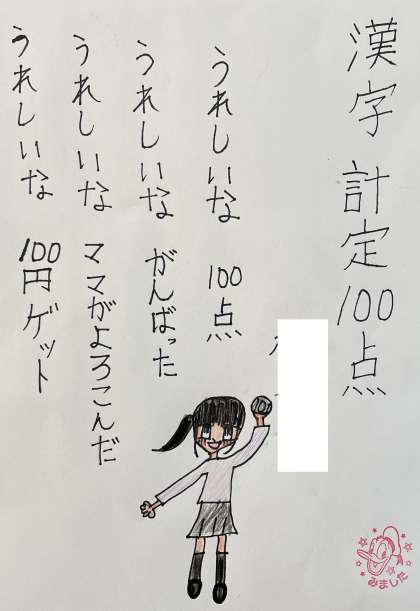 漢字計定100点
うれしいな 100点
うれしいな がんばった
うれしいな ママがよろこんだ
うれしいな 100円ゲット
みました